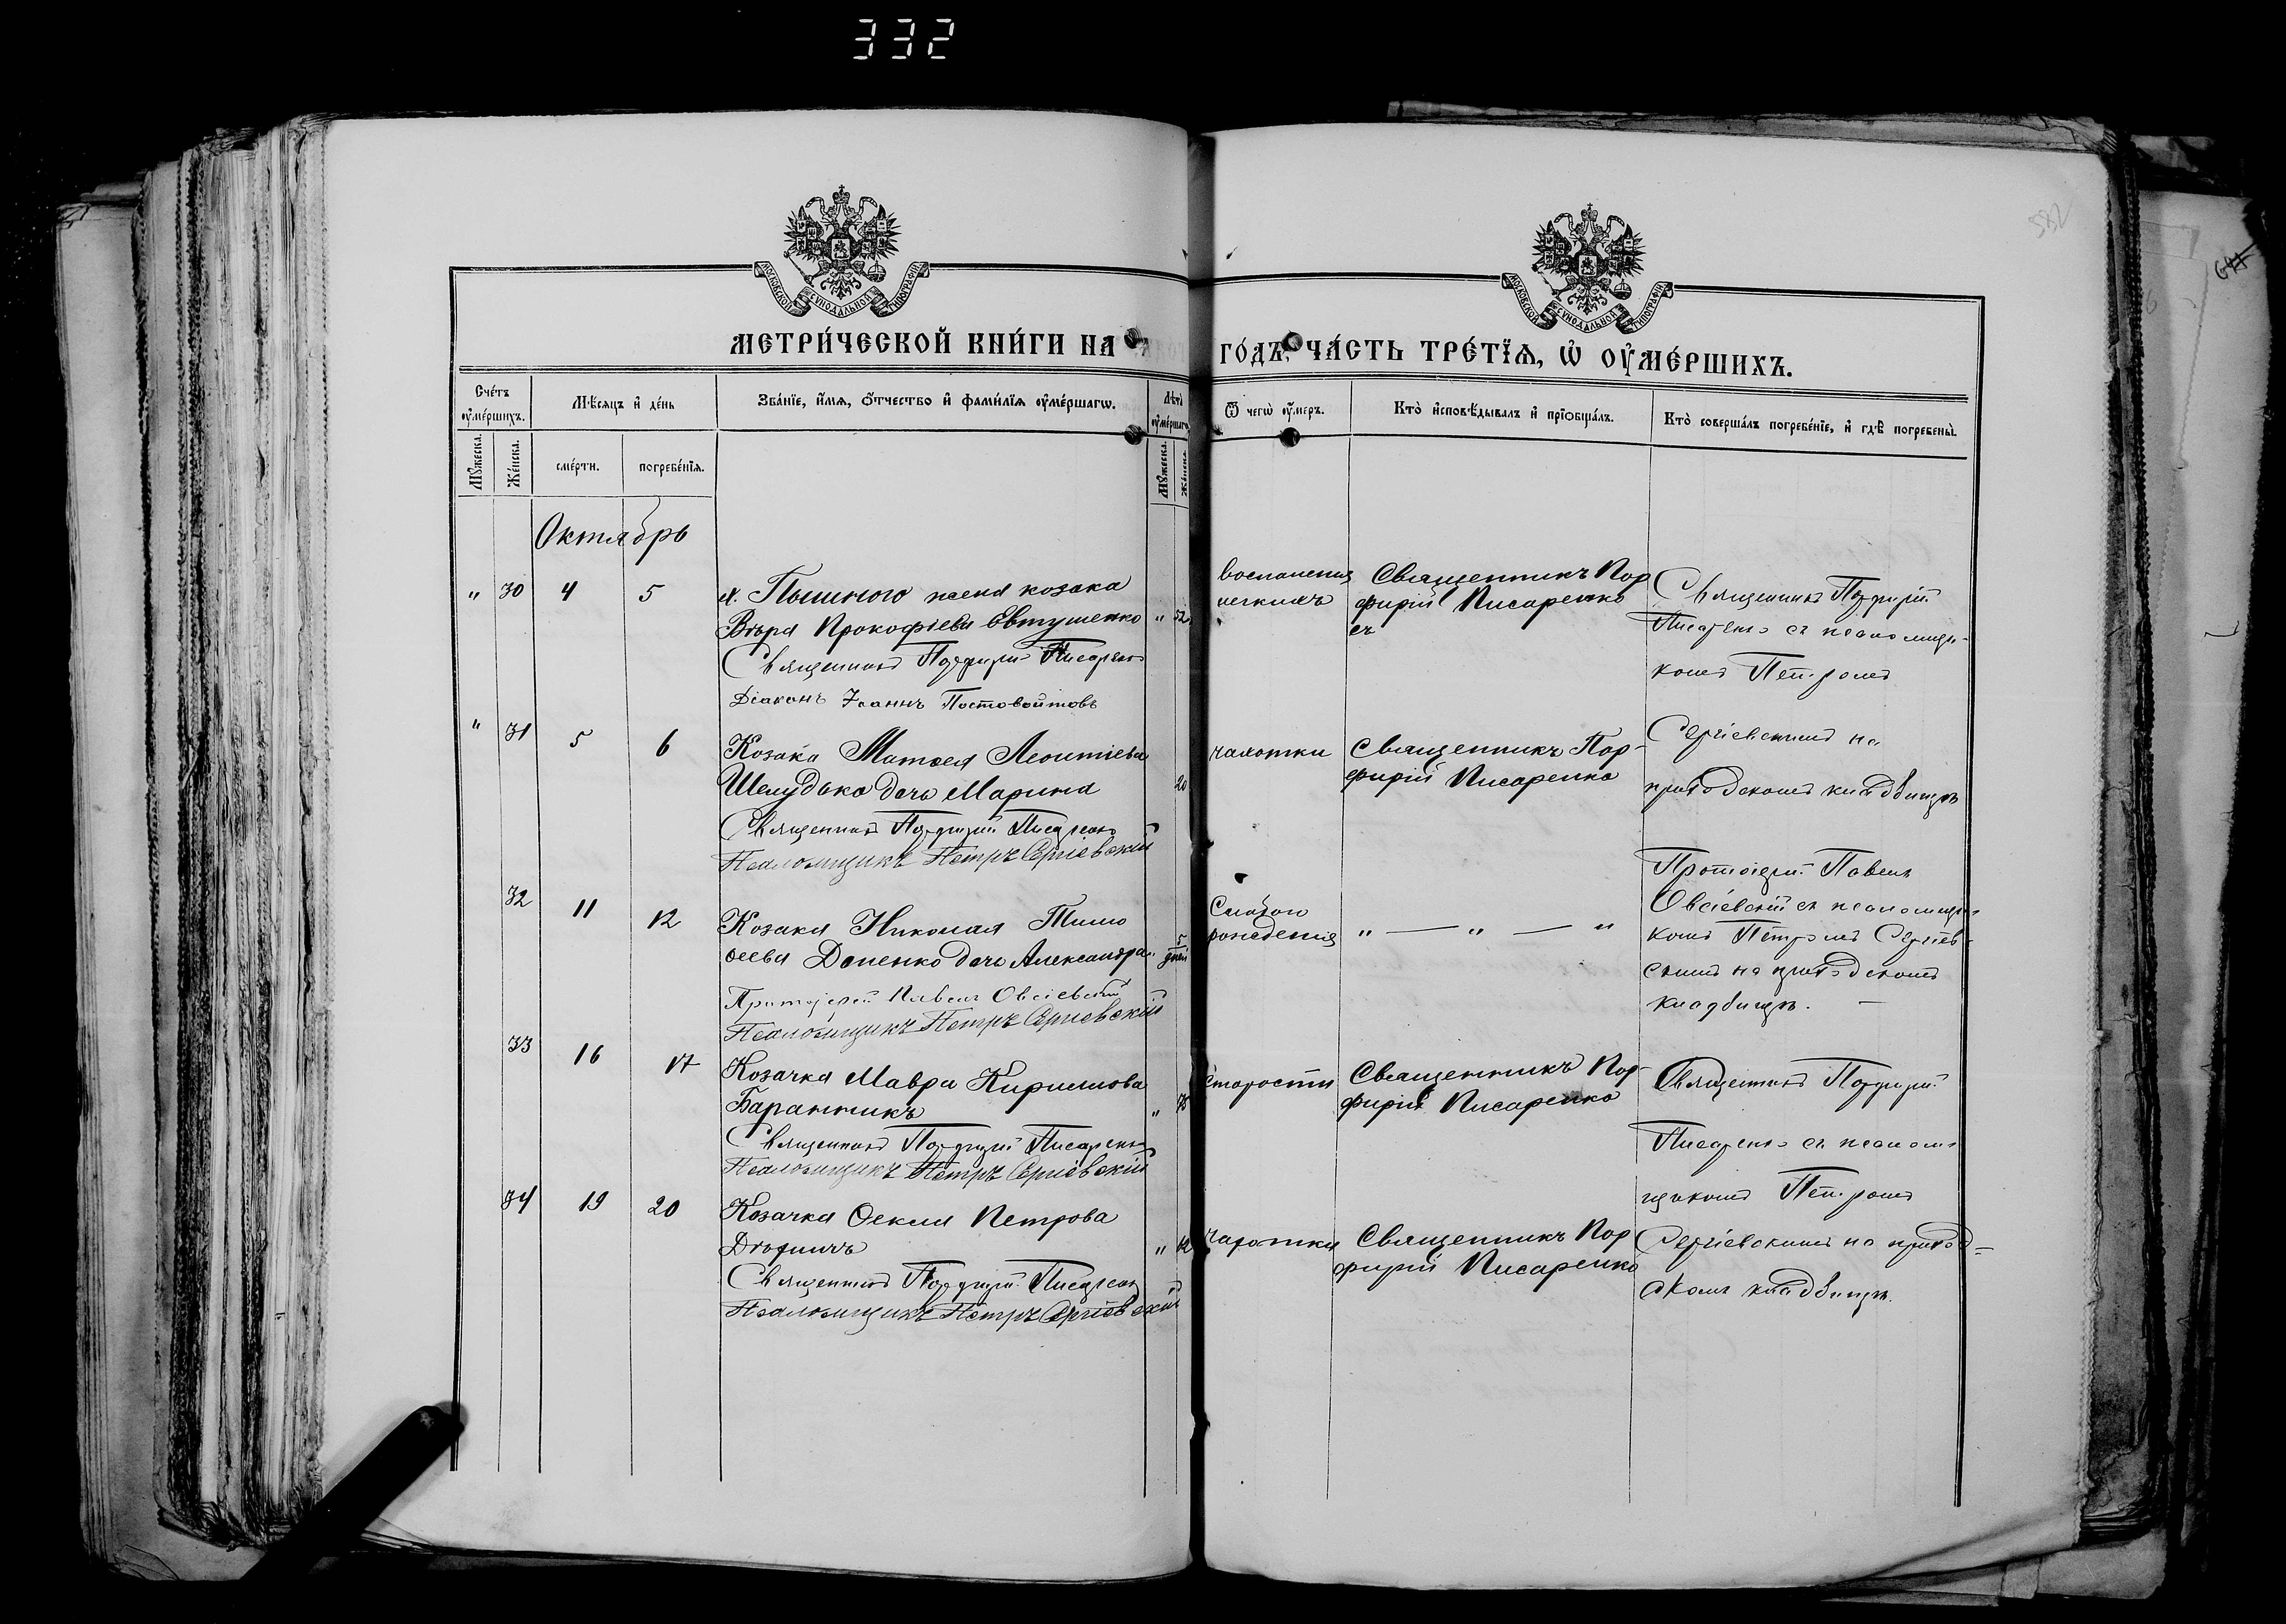 332
582
МОСКОВСКОЙ СѴНОДАЛЬНОЙ ТИПОГРАФІИ
МОСКОВСКОЙ СѴНОДАЛЬНОЙ ТИПОГРАФІИ
МЕТРИ́ЧЕСКОЙ КНИ́ГИ НА ГО́ДЪ, ЧА́СТЬ ТРЕ́ТЇѦ, Ѡ҆ ОУ҆МЕ́РШИХЪ.
Сче́тъ оу҆ме́ршихъ.
Мѣ́сяцъ и҆ де́нь
Зва́нїе, и҆́мѧ, ѻ҆́тчество и҆ фамѝлїѧ оу҆ме́ршагѡ.
Лѣ́та оу҆ме́ршагѡ
Ѿ чегѡ̀ оу҆́меръ.
Кто̀ и҆сповѣ́дывалъ и҆ прїѡбща́лъ.
Кто̀ соверша́лъ погребе́нїе, и҆ гдѣ̀ погребены̀.
Мꙋ́жеска.
Же́нска.
сме́рти.
погребе́нїѧ.
Мꙋ́жеска.
Же́нска.
Октябрь
" 30 4 5 х. Пышного жена козака
Вѣра Прокофіева Евтушенко " 52
Священникъ Порфирій Писаренко
Діаконъ Іоаннъ Постовойтовъ
воспаленія
легкихъ
Священникъ Пор
фирій Писаренко
Священникъ Порфирій
Писаренко съ псаломщи-
комъ Петромъ
" 31 5 6 Козака Матѳея Леонтіева
Шелудька дочь Марина 20
Священникъ Порфирій Писаренко
Псаломщикъ Петръ Сергіевскій
чахотки
Священникъ Пор-
фирій Писаренко
Сергіевскимъ на
приходскомъ кладбищѣ
32 11 12 Козака Николая Тимо
ѳеева Доненко дочь Александра " 5 дней
Протоіерей Павелъ Овсіевскій
Псаломщикъ Петръ Сергіевскій
Слабои
рожденія
" — " — "
Протоіерей Павелъ
Овсіевскій съ псаломщи-
комъ Петромъ Сергіев-
скимъ на приходскомъ
кладбищѣ. —
33 16 17 Козачка Мавра Кириллова
Баранникъ " 75
Священникъ Порфирій Писаренко
Псаломщикъ Петръ Сергіевскій
Старости
Священникъ Пор-
фирій Писаренко
Священникъ Порфирій
Писаренко съ псалом-
щикомъ Петромъ
34 19 20 Козачка Ѳекла Петрова
"
Священникъ Порфирій Писаренко
Псаломщикъ Петръ Сергіевскій
чахотки
Священникъ Пор
фирій Писаренко
Сергіевскимъ на приход-
скомъ кладбищѣ.